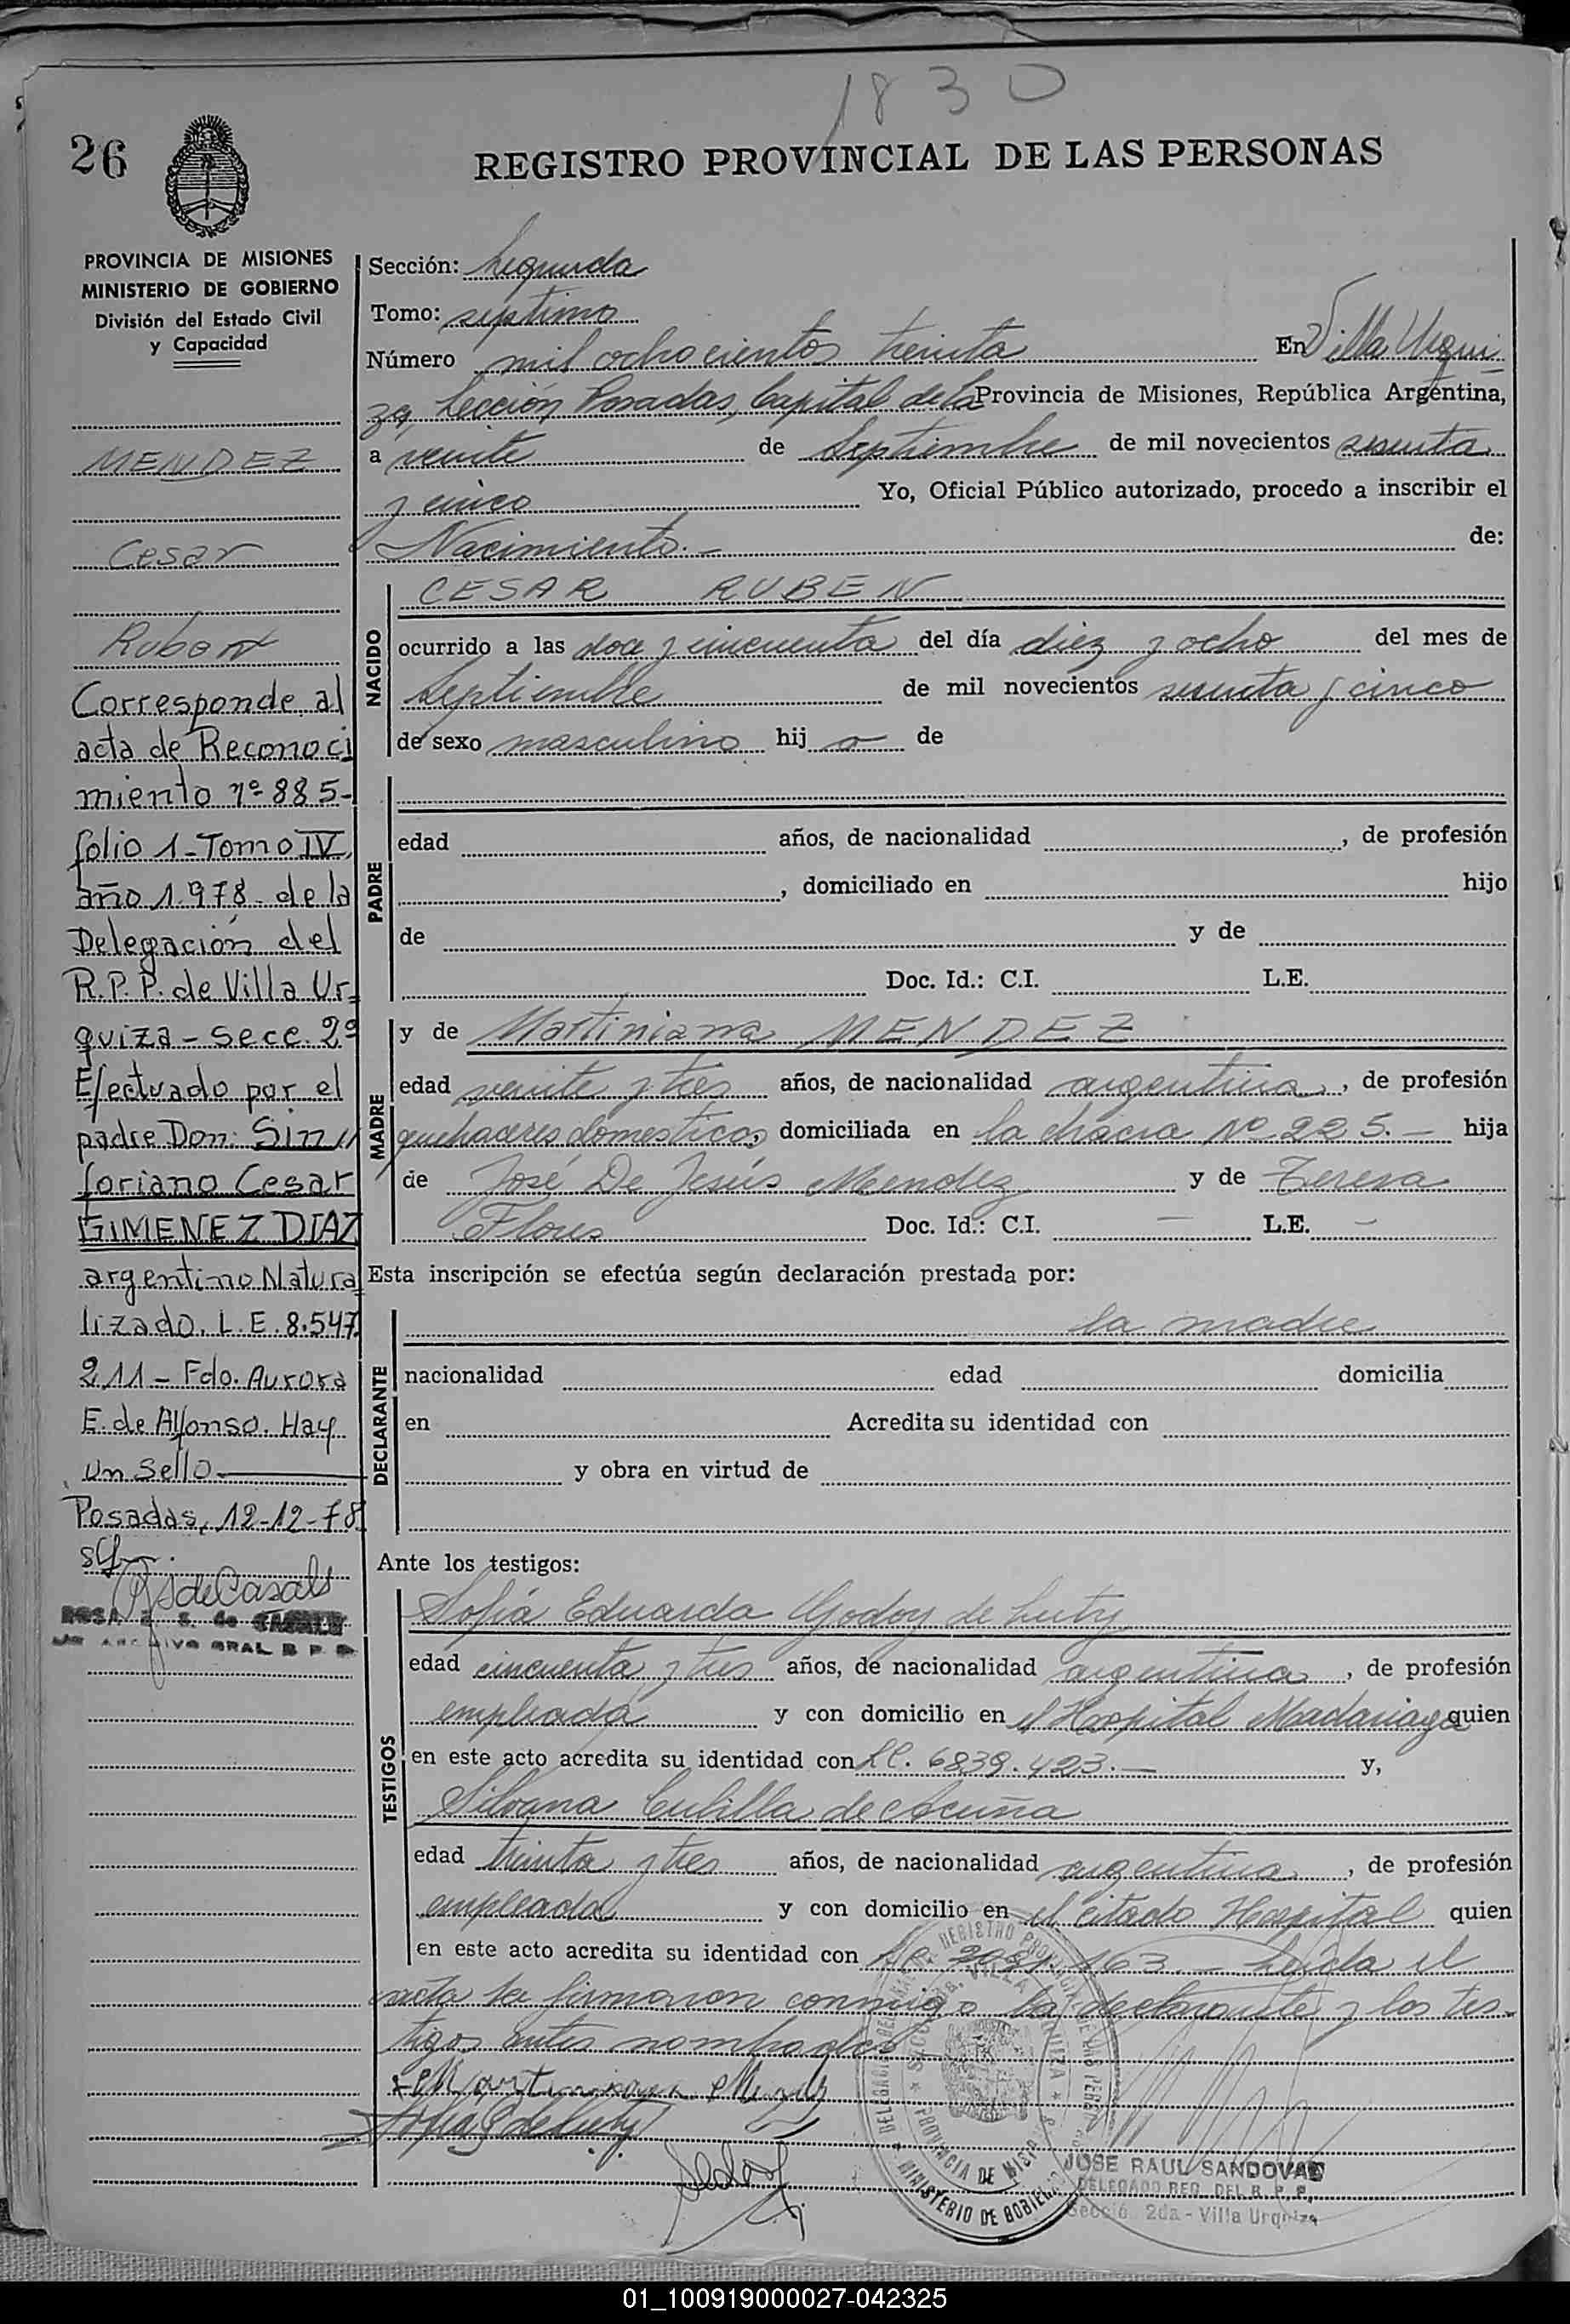 1830
26
REGISTRO PROVINCIAL DE LAS PERSONAS
PROVINCIA DE MISIONES
MINISTERIO DE GOBIERNO
División del Estado Civil
y Capacidad
MENDEZ
Cesar
Ruben
Corresponde al
acta de Reconoci
miento nº 885-
folio 1-Tomo IV
año 1.978. de la
Delegación del
R.P.P. de Villa Ur=
quiza - secc. 2º
Efectuado por el
padre Don: Sin//
foriano Cesar
GIMENEZ DIAZ
argentino Natura
lizado. L.E. 8.547.
211 - Fdo. Aurora
E. de Alfonso. Hay
un sello
Posadas, 12-12-78
de Casals
ROSA E. S. de CASALS
ARCHIVO GRAL R P P
Sección: Segunda
Tomo: septimo
Número mil ochocientos treinta En Villa Urqui
za, Sección Posadas, Capital de la Provincia de Misiones, República Argentina,
a veinte de Septiembre de mil novecientos sesenta
y cinco Yo, Oficial Público autorizado, procedo a inscribir el
Nacimiento.- de:
NACIDO
CESAR RUBEN
ocurrido a las doce y cincuenta del día diez y ocho del mes de
Septiembre de mil novecientos sesenta y cinco
de sexo masculino hij o de
PADRE
edad años, de nacionalidad , de profesión
, domiciliado en hijo
de y de
Doc. Id.: C.I. L.E.
MADRE
y de Martiniana MENDEZ
edad veinte y tres años, de nacionalidad argentina, de profesión
quehaceres domesticos, domiciliada en la chacra Nº 225.- hija
de José De Jesús Mendez y de Teresa
Flores Doc. Id.: C.I. - L.E. -
Esta inscripción se efectúa según declaración prestada por:
DECLARANTE
la madre
nacionalidad edad domicilia
en Acredita su identidad con
y obra en virtud de
Ante los testigos:
TESTIGOS
Sofía Eduarda Godoy de
edad cincuenta y tres años, de nacionalidad argentina, de profesión
empleada y con domicilio en el Hospital Madariaga quien
en este acto acredita su identidad con LC. 6839.423.- y,
Silvana Cubilla de Acuña
edad treinta y tres años, de nacionalidad argentina, de profesión
empleada y con domicilio en el citado Hospital quien
en este acto acredita su identidad con 163.- Leída el
acta la firmaron conmigo la declarante y los tes-
tigos antes nombrados
Martiniana Mendez
JOSE RAUL SANDOVAL
DELEGADO REG. DEL R. P. P.
Secció. 2da - Villa Urquiza
PROVINCIA DE MISIONES
MINISTERIO DE GOBIERNO
01_100919000027-042325